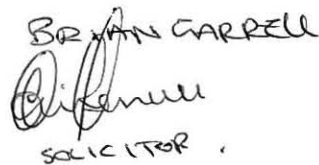 BRYAN CARRELL
SOLICITOR.